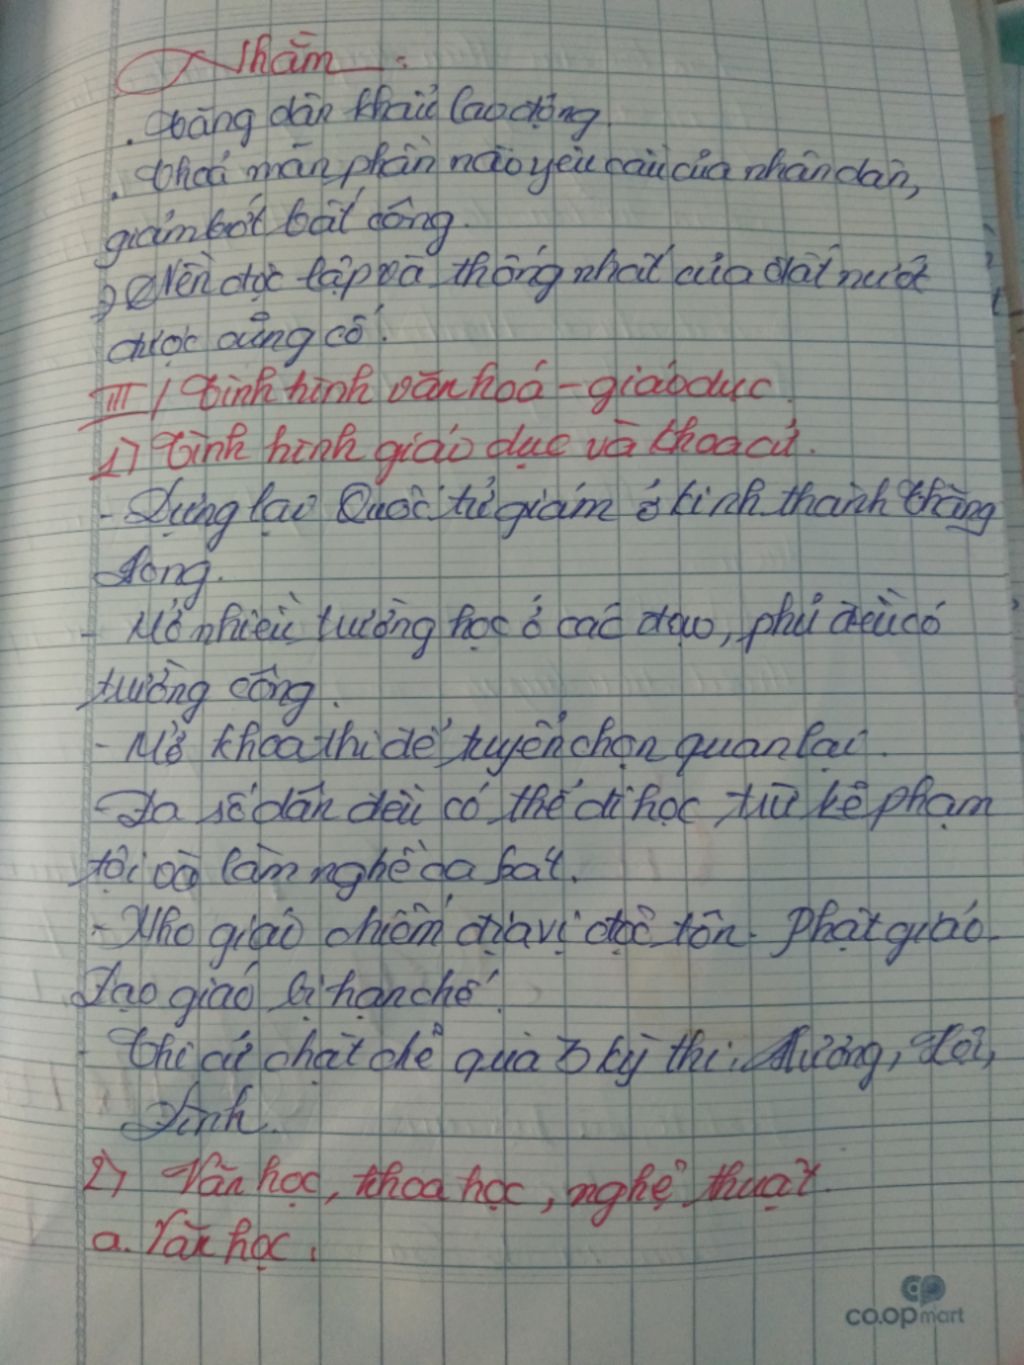 Nhằm:
. tăng dân khẩu lao động.
. thoả mãn phần nào yêu cầu của nhân dân,
giảm bớt bất công.
=> Nền độc lập và thống nhất của đất nước
được củng cố.
III / Tình hình văn hoá - giáo dục.
1) Tình hình giáo dục và khoa cử.
- Dựng lại Quốc tử giám ở kinh thành Thăng
Long.
- Mở nhiều trường học ở các đạo, phủ đều có
trường công.
- Mở khoa thi để tuyển chọn quan lại.
- Đa số dân đều có thể đi học trừ kẻ phạm
tội và làm nghề ca hát.
- Nho giáo chiếm địa vị độc tôn. Phật giáo
Đạo giáo bị hạn chế.
- Thi cử chặt chẽ qua 3 kỳ thi: Hương, Hội,
Đình.
2) Văn học, khoa học, nghệ thuật.
a. Văn học:
co.opmart